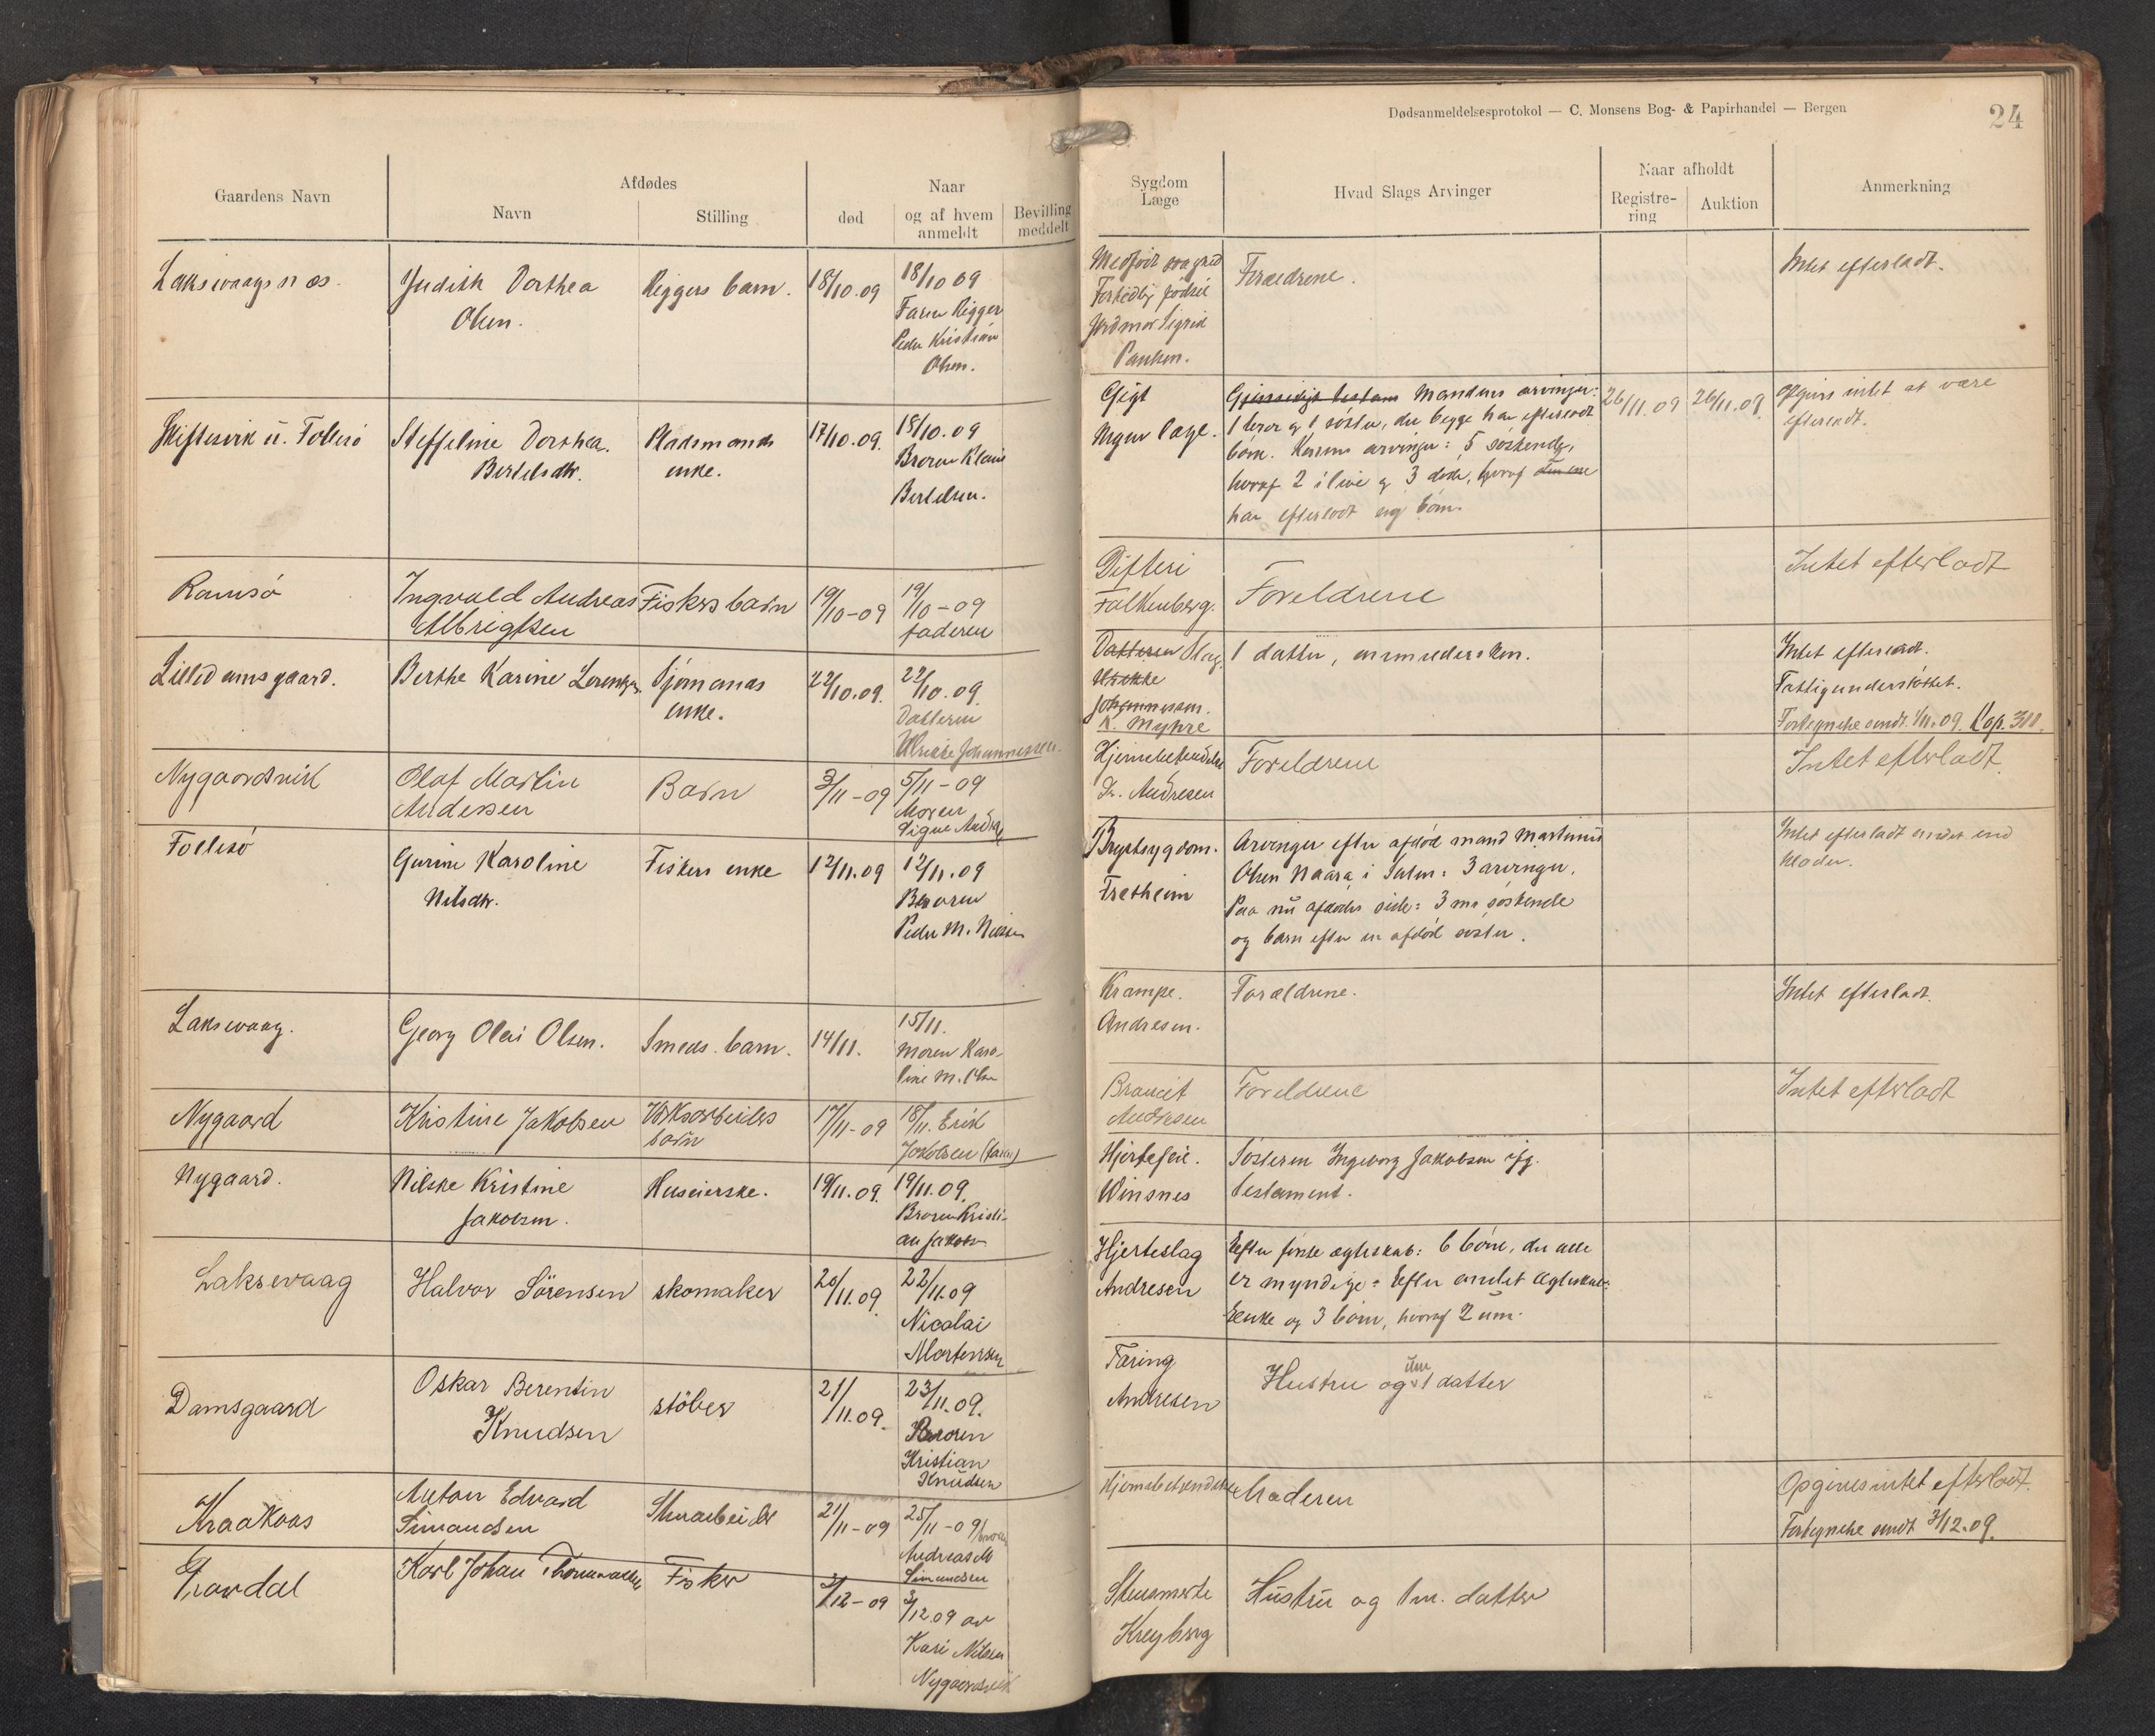 Dødsanmeldelsesprotokol — C. Monsens Bog- & Papirhandel — Bergen
24
Gaardens Navn
Afdødes
Navn
Stilling
død
Naar
og af hvem
anmeldt
Bevilling
meddelt
Sygdom
Læge
Hvad Slags Arvinger
Naar afholdt
Registre-
ring
Auktion
Anmerkning
Laksevaagsnæs.
Judith Dorthea
Olsen.
Riggers barn.
18/10.09
18/10 09
Faren Rigger
Peder Kristian
Olsen.
Medfødt svaghed
Fortidlig fødsel
Jordmor Sigrid
Paulsen.
Foreldrene.
Intet efterladt.
Skiftesvik u. Follesø
Steffeline Dorthea
Bertelsdtr.
Pladsmands
enke.
17/10.09.
18/10.09
Broren Klaus
Bertelsen.
Gigt
Ingen læge.
Gjensidigt testam Mandens arvinger:
1 bror og 1 søster, der begge har efterladt
børn. Konens arvinger: 5 søskende,
hvoraf 2 i live og 3 døde, hvoraf den ene
har efterladt sig børn.
26/11.09
26/11.09.
Opgives intet at være
efterladt.
Ramsø
Ingvald Andreas
Albrigtsen
Fiskers barn
19/10-09
19/10-09
faderen
Difteri
Falkenberg.
Foreldrene
Intet efterladt
Lilledamsgaard.
Berthe Karine Lorentzen
Sjømands
enke.
22/10.09.
22/10.09.
Datteren
Ulrikke Johannessen.
Datteren Slag
Ulrikke
Johannessen.
K. Myhre
1 datter, anmeldersken.
Intet efterladt.
Fattigunderstøttet.
Forkynelse sendt 1/11.09. Kop. 300.
Nygaardsvik
Olaf Martin
Andersen
Barn
3/11-09
5/11-09
Moren
Signe Andersen
Hjernebetændelse
Dr. Andresen
Foreldrene
Intet efterladt
Follesø
Gurine Karoline
Nilsdtr.
Fiskers enke
12/11.09
12/11.09
Broren
Peder M. Nilssen
Brystsygdom.
Fretheim
Arvinger efter afdød mand Martinus
Olsen Naara i Sulen: 3 arvinger.
Paa nu afdødes side: 3 m. søskende
og barn efter en afdød søster.
Intet efterladt andet end
klæder.
Laksevaag.
Georg Olai Olsen.
Smeds barn.
14/11.
15/11.
Moren Karo-
line M. Olsen
Krampe.
Andresen.
Forældrene.
Intet efterladt.
Nygaard
Kristine Jakobsen
Verksarbeiders
barn
17/11-09
18/11. Erik
Jakobsen (faren)
Andresen
Foreldrene
Intet efterladt
Nygaard.
Nilske Kristine
Jakobsen.
Huseierske.
19/11.09.
19/11.09.
Broren Kristi-
an Jakobsen
Hjertefeil.
Winsnes
Søsteren Ingeborg Jakobsen ifg.
testament.
Laksevaag
Halvor Sörensen
skomaker
20/11.09.
22/11.09
Nicolai
Mortensen
Hjerteslag
Andresen
Efter første ægteskab: 6 børn, der alle
er myndige. Efter andet ægteskab:
Enke og 3 børn, hvoraf 2 um.
Damsgaard
Oskar Berentin
Knudsen
stöber
21/11.09.
23/11.09.
Broren
Kristian
Knudsen
Tæring
Andresen
Hustru og um. 1 datter
Kraakaas
Anton Edvard
Simonsen
Stuearbeider
21/11-09
25/11-09 broren
Andreas M
Simonsen
Hjernebetændelse
Moderen
Opgives intet efterladt.
Forkynelse sendt 3/12.09.
Gravdal
Karl Johan
Fisker
2/12-09
3/12.09 av
Kari Nilsen
Nygaardsvik
Kreyberg
Hustru og 1 m. datter